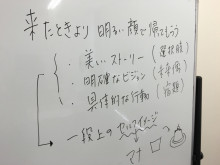 来たときより 明るい顔で帰ってもらう
・美しいストーリー (選択肢)
・明確なビジョン (未来像)
・具体的な行動 (宿題)
一段上の セルフイメージ
マナ